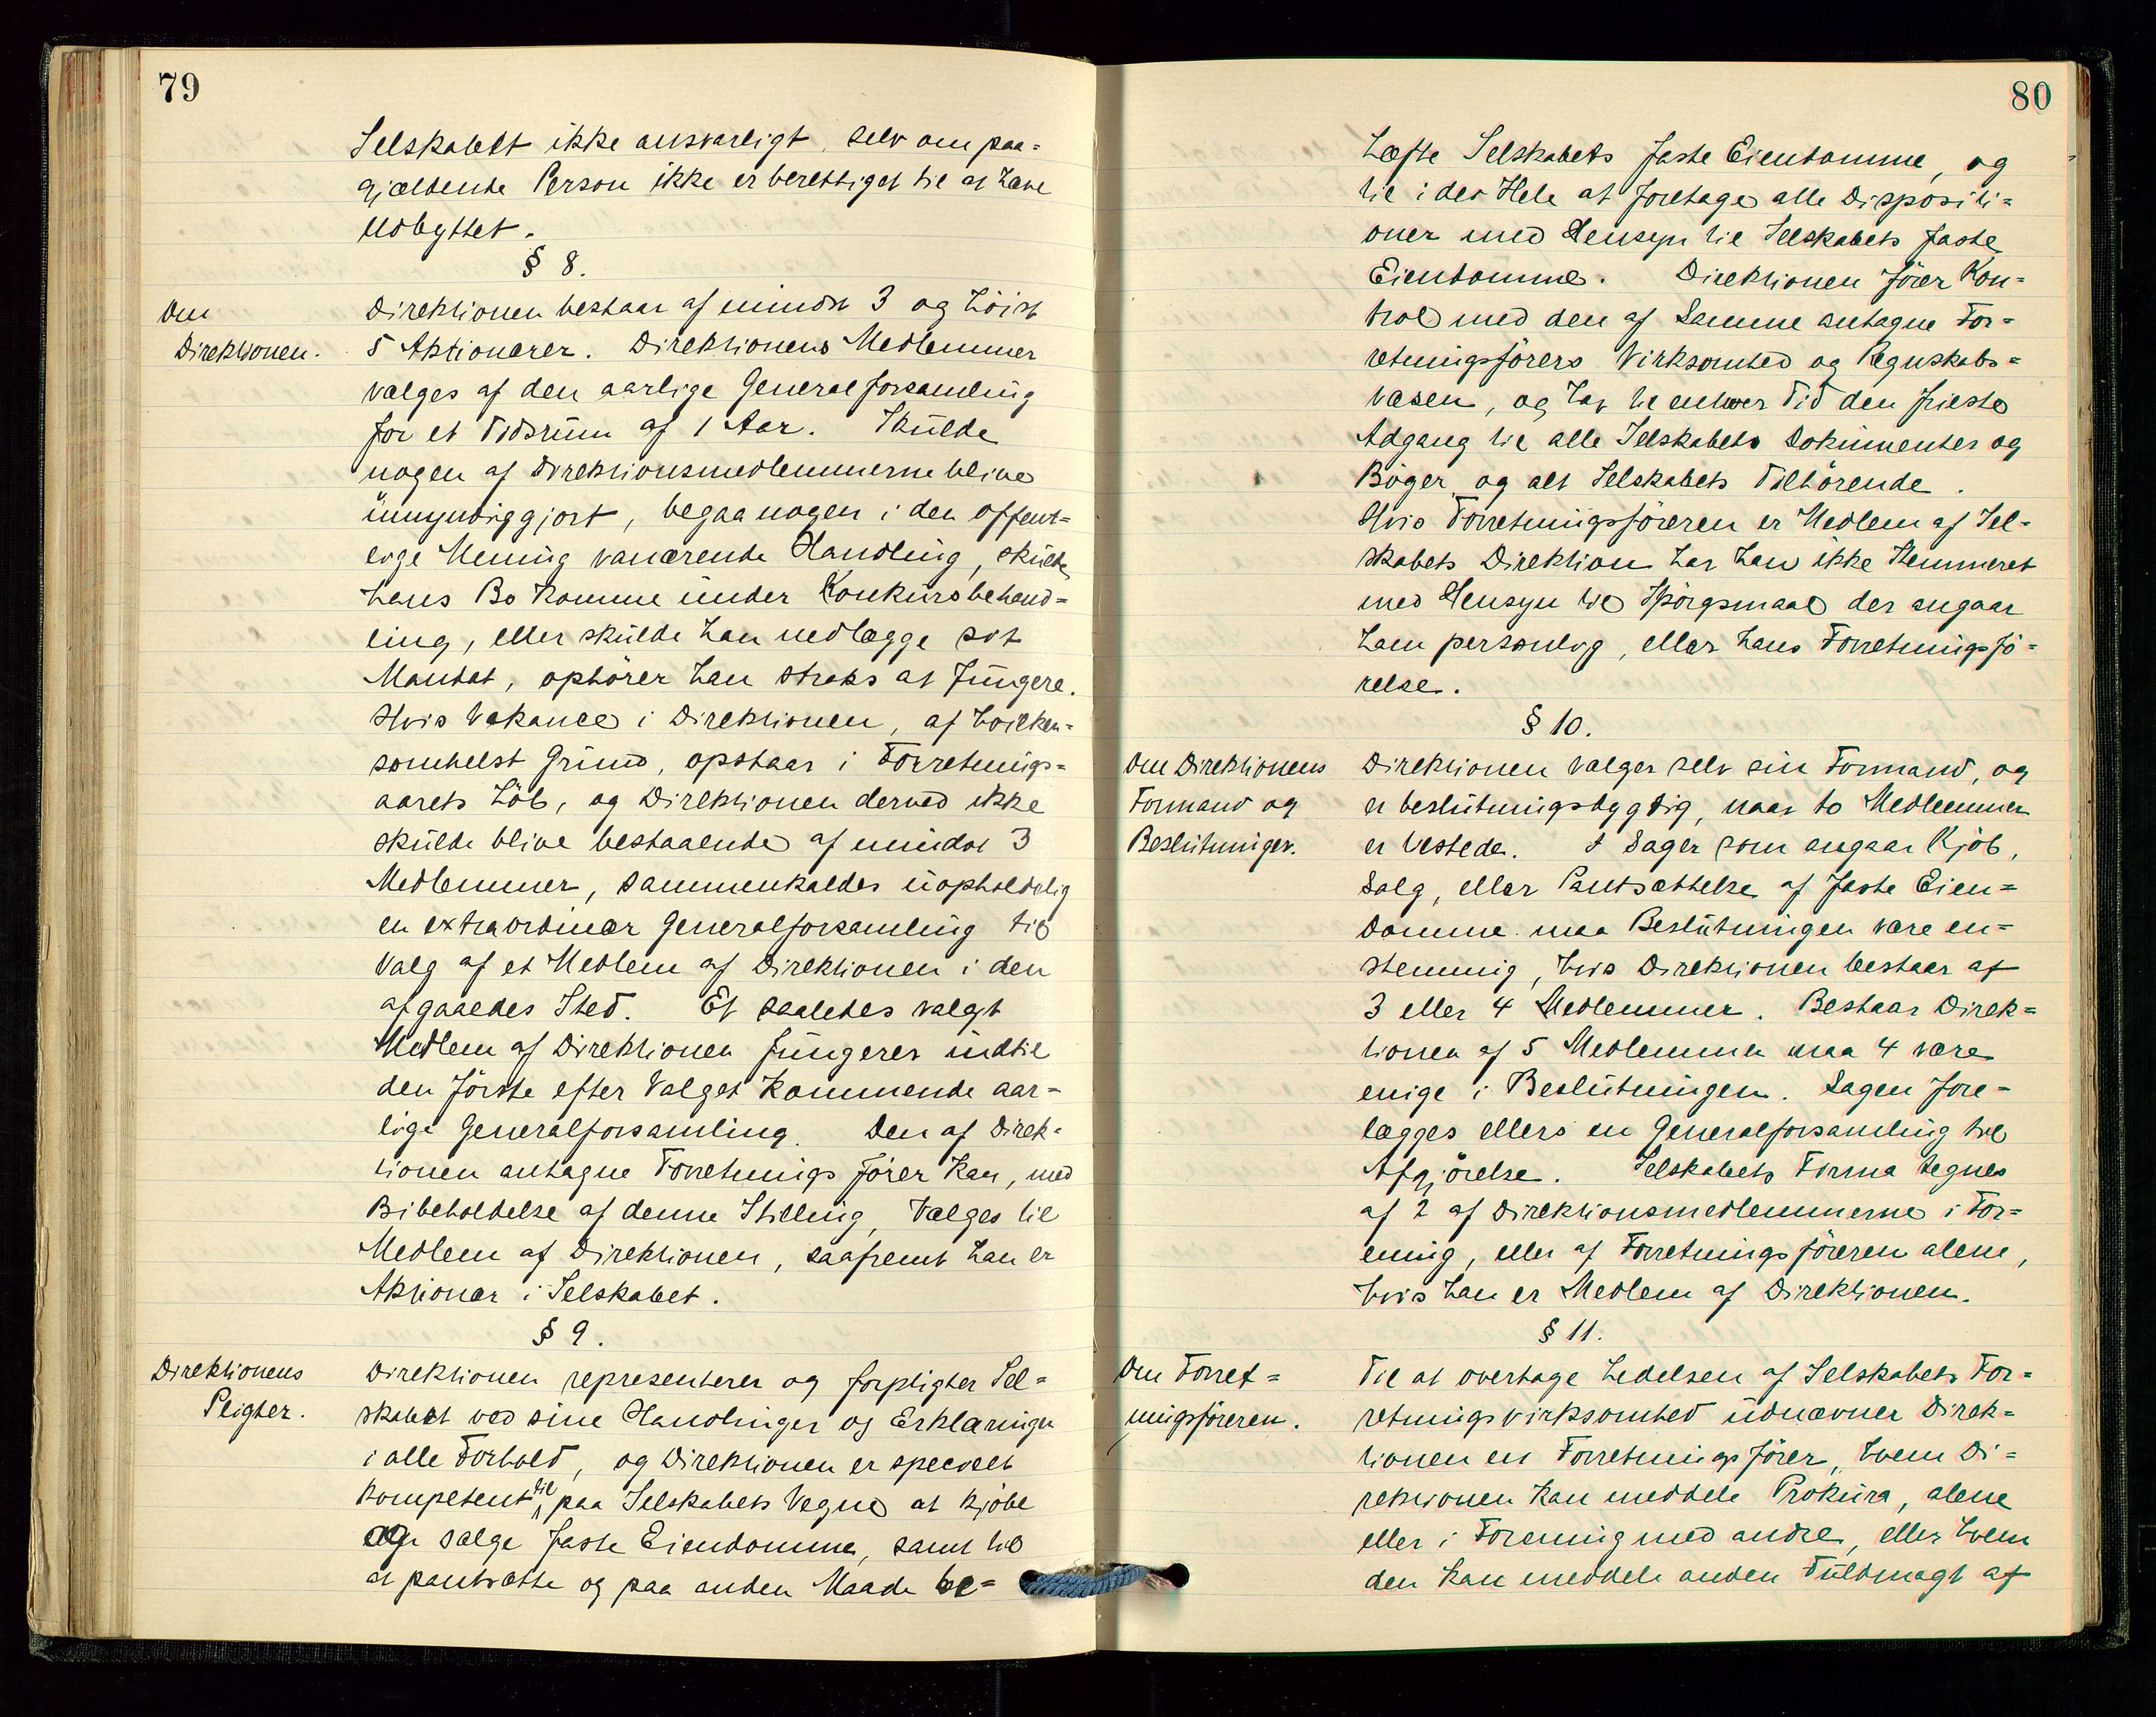 79
Selskabet ikke ansvarligt, selv om paa=
gjældende Person ikke er berettiget til at hæve
Udbyttet.
§ 8.
Om
Direktionen.
Direktionen bestaar af mindst 3 og høist
5 Aktionærer. Direktionens Medlemmer
vælges af den aarlige Generalforsamling
for et Tidsrum af 1 Aar. Skulde
nogen af Direktionsmedlemmerne blive
umyndiggjort, begaa nogen i den offent=
lige Mening vanærende Handling, skulde
hans Bo komme under Konkursbehand=
ling, eller skulde han nedlægge sit
Mandat, ophører han straks at fungere.
Hvis Vakance i Direktionen, af hvilken=
somhelst Grund, opstaar i Forretnings=
aarets Løb, og Direktionen derved ikke
skulde blive bestaaende af mindst 3
Medlemmer, sammenkaldes uopholdelig
en extraordinær Generalforsamling til
Valg af et Medlem af Direktionen i den
afgaaedes Sted. Et saaledes valgt
Medlem af Direktionen fungerer indtil
den første efter Valget kommende aar=
lige Generalforsamling. Den af Direk=
tionen antagne Forretningsfører kan, med
Bibeholdelse af denne Stilling, vælges til
Medlem af Direktionen, saafremt han er
Aktionær i Selskabet.
§ 9.
Direktionens
Pligter.
Direktionen representerer og forpligter Sel=
skabet ved sine Handlinger og Erklæringer
i alle Forhold, og Direktionen er specielt
kompetent til, paa Selskabets Vegne at kjøbe
og sælge faste Eiendomme, samt til
at pantsætte og paa anden Maade be=
80
hæfte Selskabets faste Eiendomme, og
til i det Hele at foretage alle Dispositi=
oner med Hensyn til Selskabets faste
Eiendomme. Direktionen fører Kon=
trol med den af Samme antagne For=
retningsførers Virksomhed og Regnskabs=
væsen, og har til enhver Tid den frieste
Adgang til alle Selskabets Dokumenter og
Bøger og alt Selskabets Tilhørende.
Hvis Forretningsføreren er Medlem af Sel=
skabets Direktion har han ikke Stemmeret
med Hensyn til Spørgsmaal der angaar
ham personlig, eller hans Forretningsfø=
relse.
§ 10.
Om Direktionens
Formand og
Beslutninger.
Direktionen vælger selv sin Formand, og
er beslutningsdygtig, naar to Medlemmer
er tilstede. I Sager som angaar Kjøb,
Salg, eller Pantsættelse af faste Eien=
domme maa Beslutningen være en=
stemmig, hvis Direktionen bestaar af
3 eller 4 Medlemmer. Bestaar Direk=
tionen af 5 Medlemmer maa 4 være
enige i Beslutningen. Sagen fore=
lægges ellers en Generalforsamling til
Afgjørelse. Selskabets Firma tegnes
af 2 af Direktionsmedlemmerne i For=
ening, eller af Forretningsføreren alene,
hvis han er Medlem af Direktionen.
§ 11.
Om Forret=
ningsføreren.
Til at overtage Ledelsen af Selskabets For=
retningsvirksomhed udnævner Direk=
tionen en Forretningsfører, hvem Di=
rektionen kan meddele Prokura, alene
eller i Forening med andre, eller hvem
den kan meddele anden Fuldmagt af